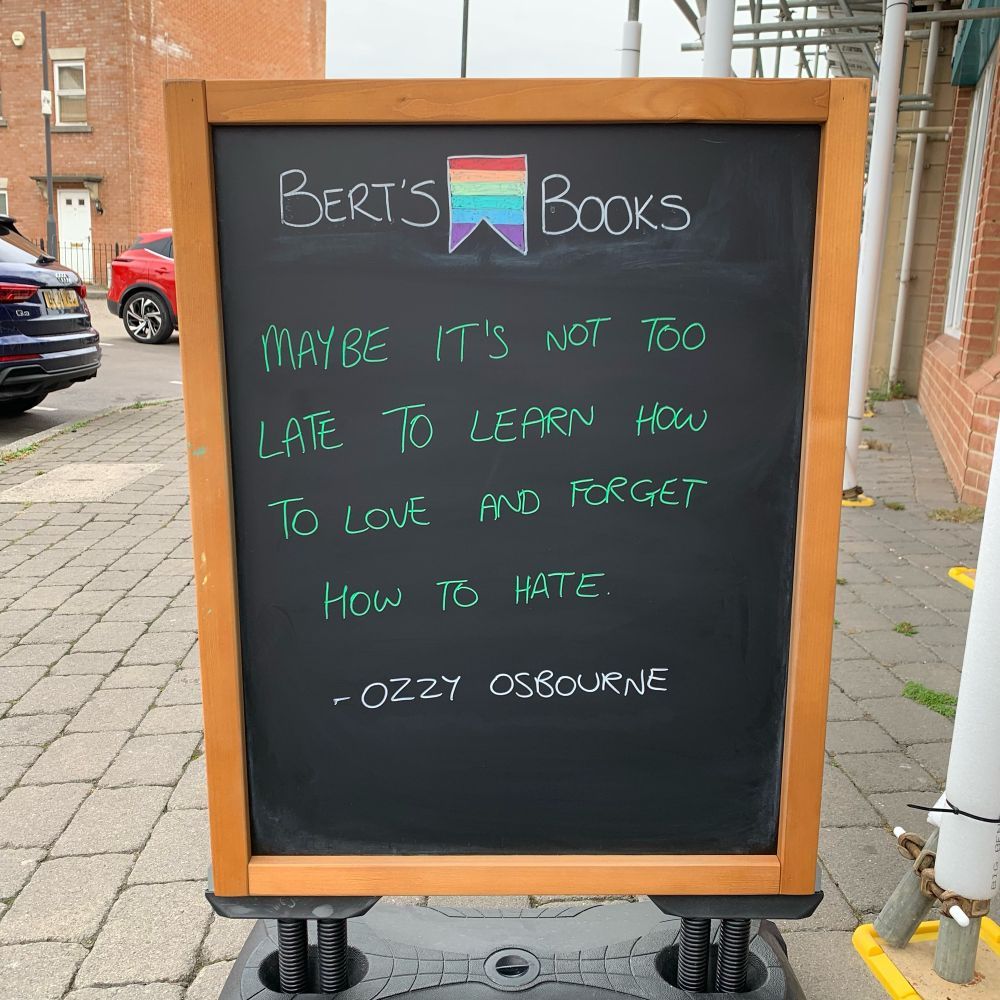 BERT'S BOOKS
MAYBE IT'S NOT TOO
LATE TO LEARN HOW
TO LOVE AND FORGET
HOW TO HATE.
- OZZY OSBOURNE
Q3